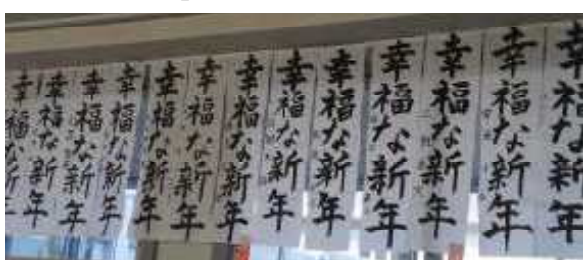 幸福な新年
幸福な新年
幸福な新年
幸福な新年
幸福な新年
幸福な新年
幸福な新年
幸福な新年
幸福な新年
幸福な新年
幸福な新年
幸福な新年
幸福な新年